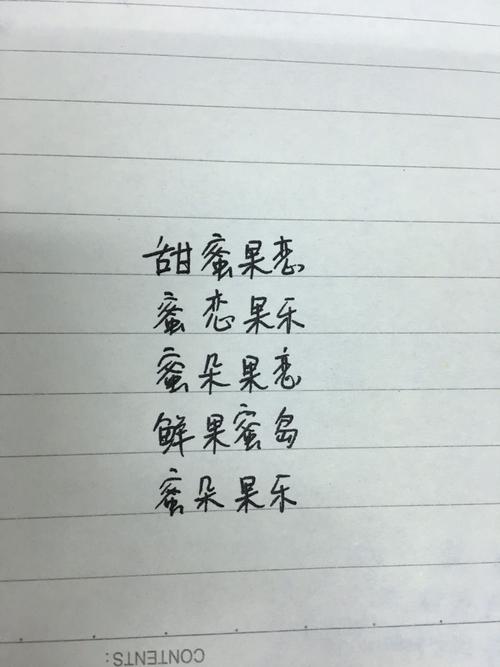 甜蜜果恋
蜜恋果乐
蜜朵果恋
鲜果蜜岛
蜜朵果乐
CONTENTS: